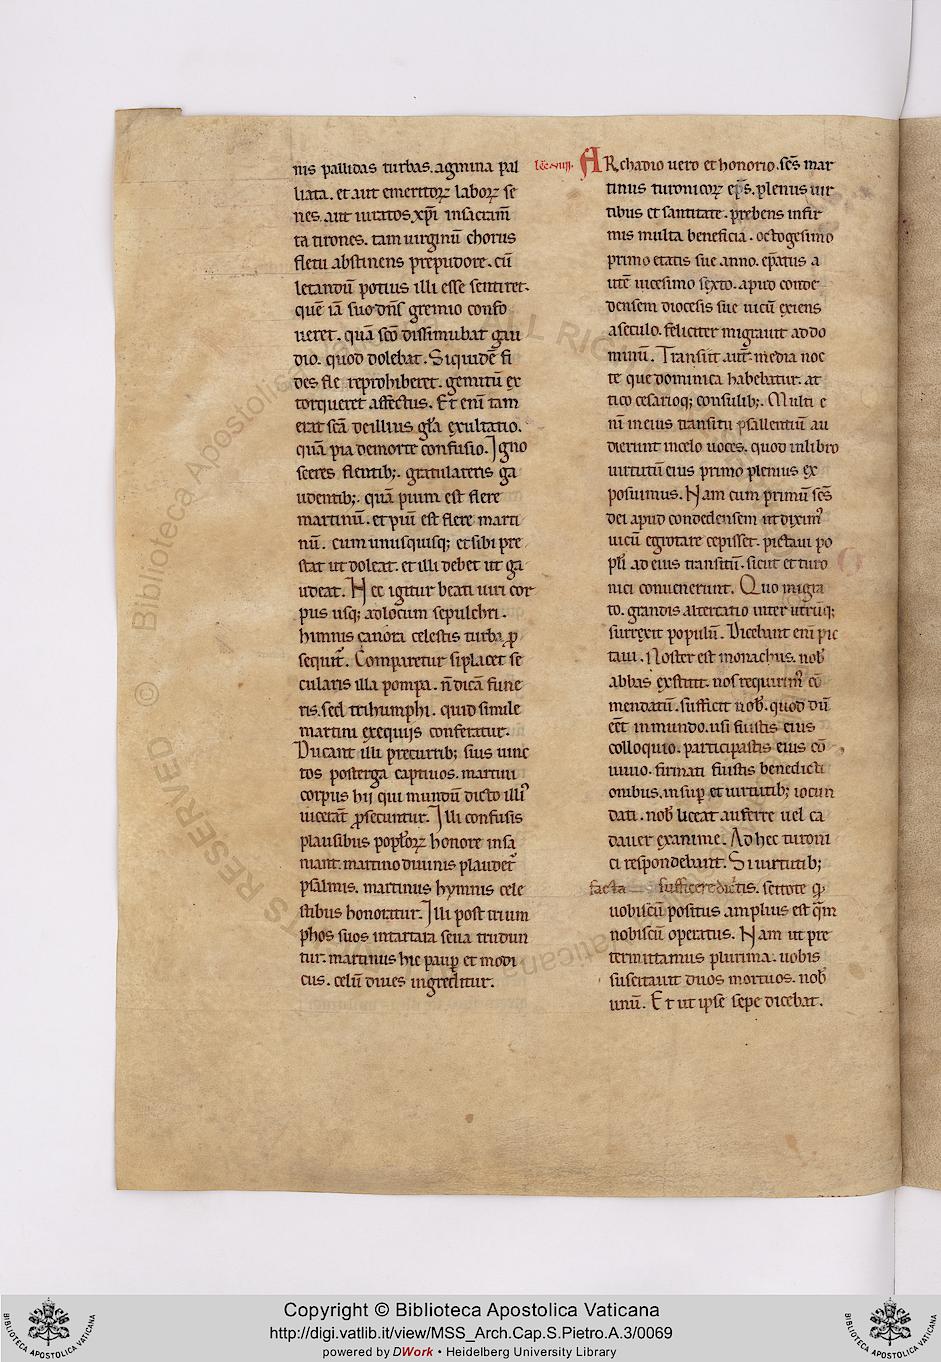 nis pallidas turbas. agmina pal
liata. et aut emeritoꝝ laboꝝ se
nes. aut iuratos xp̄i in sacram̄
ta tirones. tam uirginū chorus
fletu abstinens prepudore. cū
letandū potius illi esse sentiret.
quē iā suo dn̄s gremio confo
ueret. quā sc̄o dissimulat gau
dio. quod dolebat. Siquidē fi
des fle reprohiberet. gemitū ex
torqueret affectus. Et enī tam
erat sc̄a de illius gl̄a exultatio.
quā pia demorte confusio. Igno
sceres flentib;. gratulareris ga
udentib;. quā pium est flere
martinū. et piū est flere marti
nū. cum unusquisq; et sibi pre
stat ut doleat. et illi debet ut ga
udeat. Hec igitur beati uiri cor
pus usq; adlocum sepulchri.
himnis canora celestis turba ꝓ
sequit᷑. Comparetur si placet se
cularis illa pompa. n̄ dicā fune
ris. sed trihumphi. quid simile
martini exequijs conferatur.
Ducant illi precurrib; suis uinc
tos posterga captiuos. martini
corpus hij qui mundū dicto illiꝰ
uicerāt ꝓsecuntur. Illi confusis
plausibus popl̄oꝝ honore insa
niant. martino diuinis plaudet᷑
psalmis. martinus hymnis cele
stibus honoratur. Illi post trium
phos suos intartara seua trudun
tur. martinus hic paup̄ et modi
cus. celū diues ingreditur.
lc̄c. viii. ARchadio uero et honorio. sc̄s mar
tinus turonicoꝝ ep̄s. plenus uir
tibus et santitate. prebens infir
mis multa beneficia. octogesimo
primo etatis sue anno. ep̄atus a
utē uicesimo sexto. apud conde
densem diocesis sue uicū exiens
a seculo. feliciter migrauit addo
minū. Transiit aut̄ media noc
te que dominica habebatur. at
tico cesarioq; consulib;. Multi e
nī in eius transitu psallentiū au
dierunt incelo uoces. quod inlibro
uirtutū eius primo plenius ex
posuimus. Nam cum primū sc̄s
dei apud condedensem ut diximꝰ
uicū egrotare cepisset. pictaui po
pl̄i ad eius transitū. sicut et turo
nici conuenerunt. Quo migra
to. grandis altercatio inter utrūq;
surrexit populū. Dicebant enī pic
taui. Noster est monachus. nob̄
abbas exstitit. nos requirimꝰ cō
mendatū. sufficit nob̄. quod dū
eēt in mundo. usi fuistis eius
colloquio. participastis eius cō
uiuio. firmati fuistis benedicti
onibus. insup̄ et uirtutib; iocun
dati. nob̄ liceat auferre uel ca
dauer exanime. Ad hec turoni
ci respondebant. Si uirtutib;
facta sufficere dic̄tis. scitote q̄
uobiscū positus amplius est q̄m
nobiscū operatus. Nam ut pre
termittamus plurima. uobis
suscitauit duos mortuos. nob̄
unū. Et ut ipse sepe dicebat.
Copyright © Biblioteca Apostolica Vaticana
http://digi.vatlib.it/view/MSS_Arch.Cap.S.Pietro.A.3/0069
powered by DWork • Heidelberg University Library